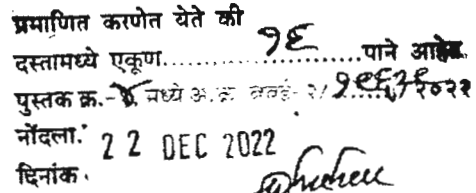 प्रमाणित करणेत येते की
दस्तामध्ये एकूण.......१६.......पाने आहेत.
पुस्तक क्र.-४ मध्ये अ.क्र. बबई- २/ /२०२२
नोंदला.
22 DEC 2022
दिनांक.